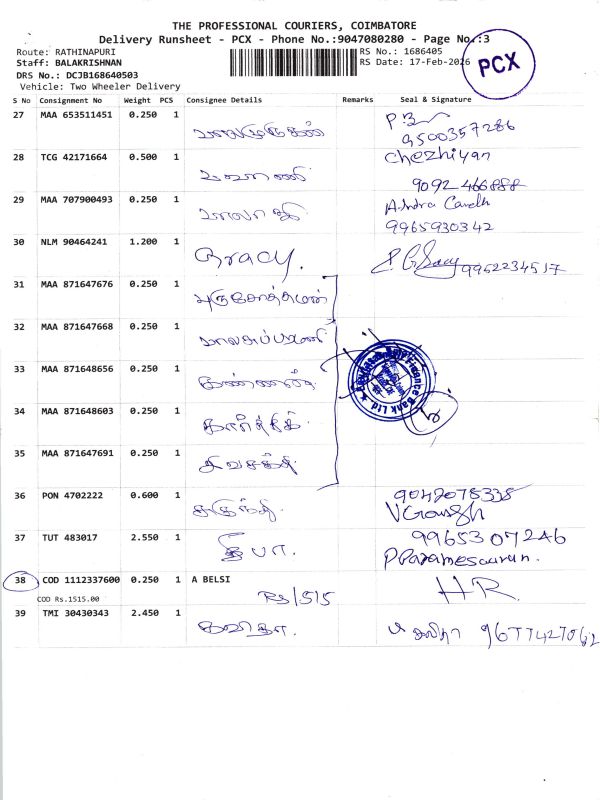 THE PROFESSIONAL COURIERS, COIMBATORE
Delivery Runsheet - PCX - Phone No.:9047080280 - Page No.:3
Route: RATHINAPURI
RS No.: 1686405
Staff: BALAKRISHNAN
RS Date: 17-Feb-2026
PCX
DRS No.: DCJB168640503
Vehicle: Two Wheeler Delivery
S No Consignment No Weight PCS Consignee Details Remarks Seal & Signature
27 MAA 653511451 0.250 1 பாலமுருகன்
9500357286
28 TCG 42171664 0.500 1 Chezhiyan
9092 466888
29 MAA 707900493 0.250 1 பாலாஜி
9965930342
30 NLM 90464241 1.200 1 Gracy. 9962234517
31 MAA 871647676 0.250 1 புருசோத்தமன்
32 MAA 871647668 0.250 1 பாலசுப்பரமணி
33 MAA 871648656 0.250 1 கண்ணன்
34 MAA 871648603 0.250 1 கார்த்திக்
Finance Bank Ltd
35 MAA 871647691 0.250 1 சிவசக்தி
36 PON 4702222 0.600 1 9042075338
37 TUT 483017 2.550 1 தீபா. 9965307246
P Parameswaran.
38 COD 1112337600 0.250 1 A BELSI
COD Rs.1515.00 Rs/1515 HR
39 TMI 30430343 2.450 1 கவிதா. 9677427062